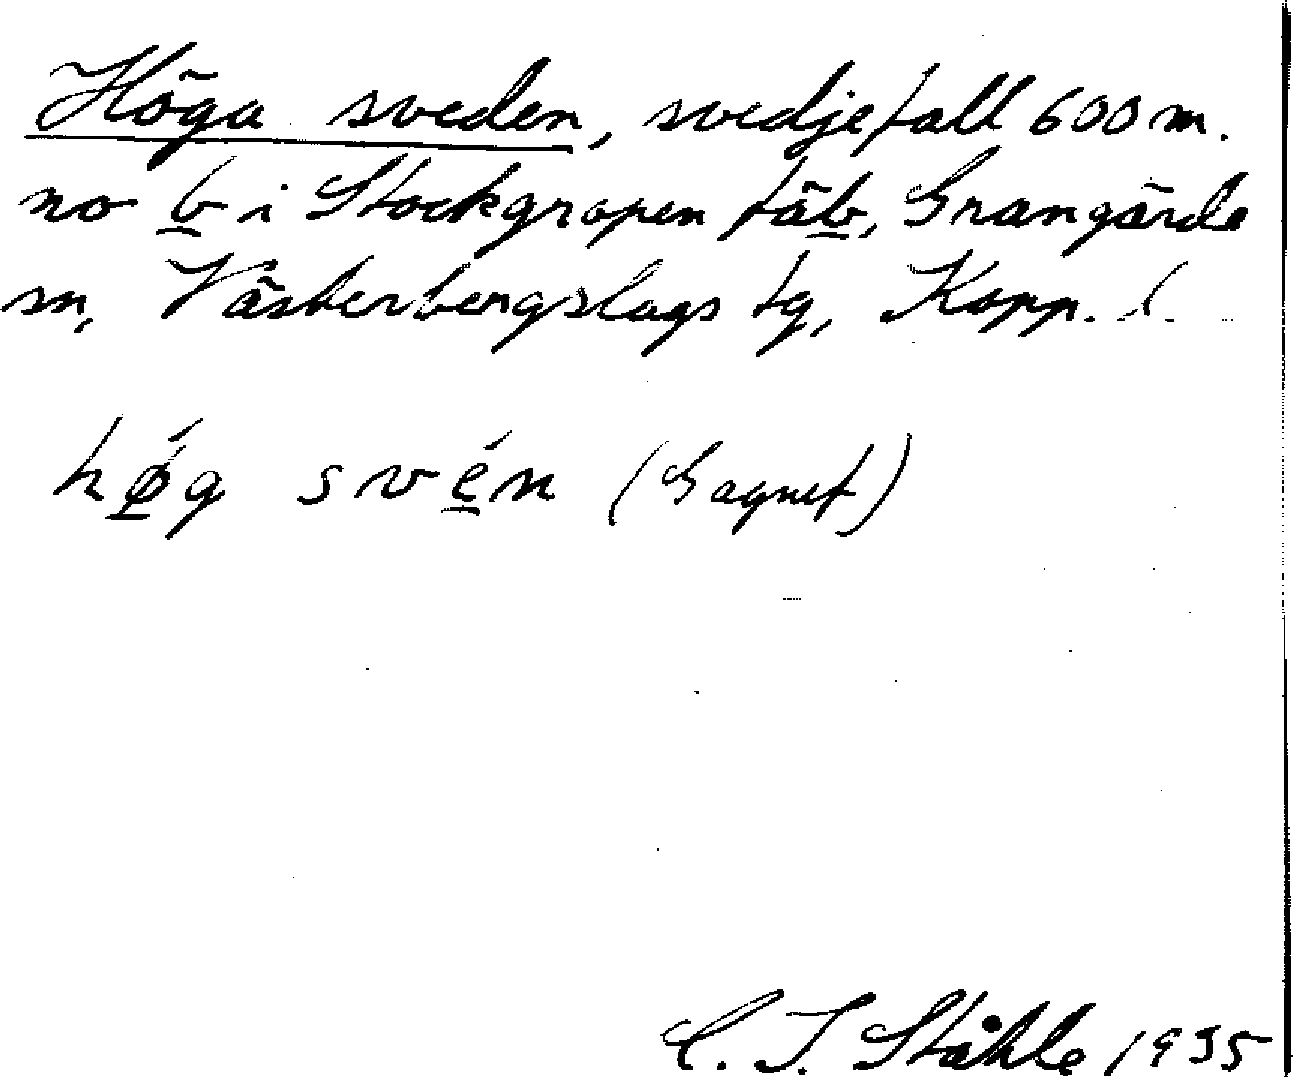 Höga sveden, svedjefall 600 m.
no b i Stockgropen fäb, Grangärde
sn, Västerbergslags tg, Kopp. l.
hǿg svén (Gagnef)
C. I. Ståhle 1935